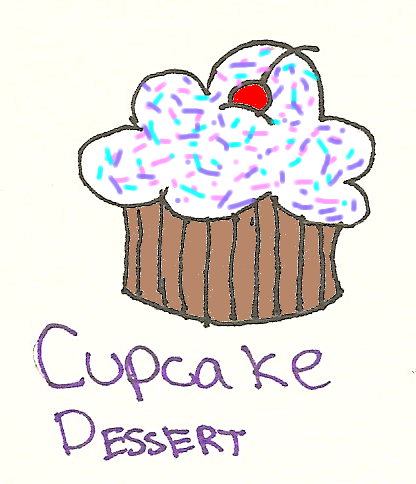 Cupcake
DESSERT